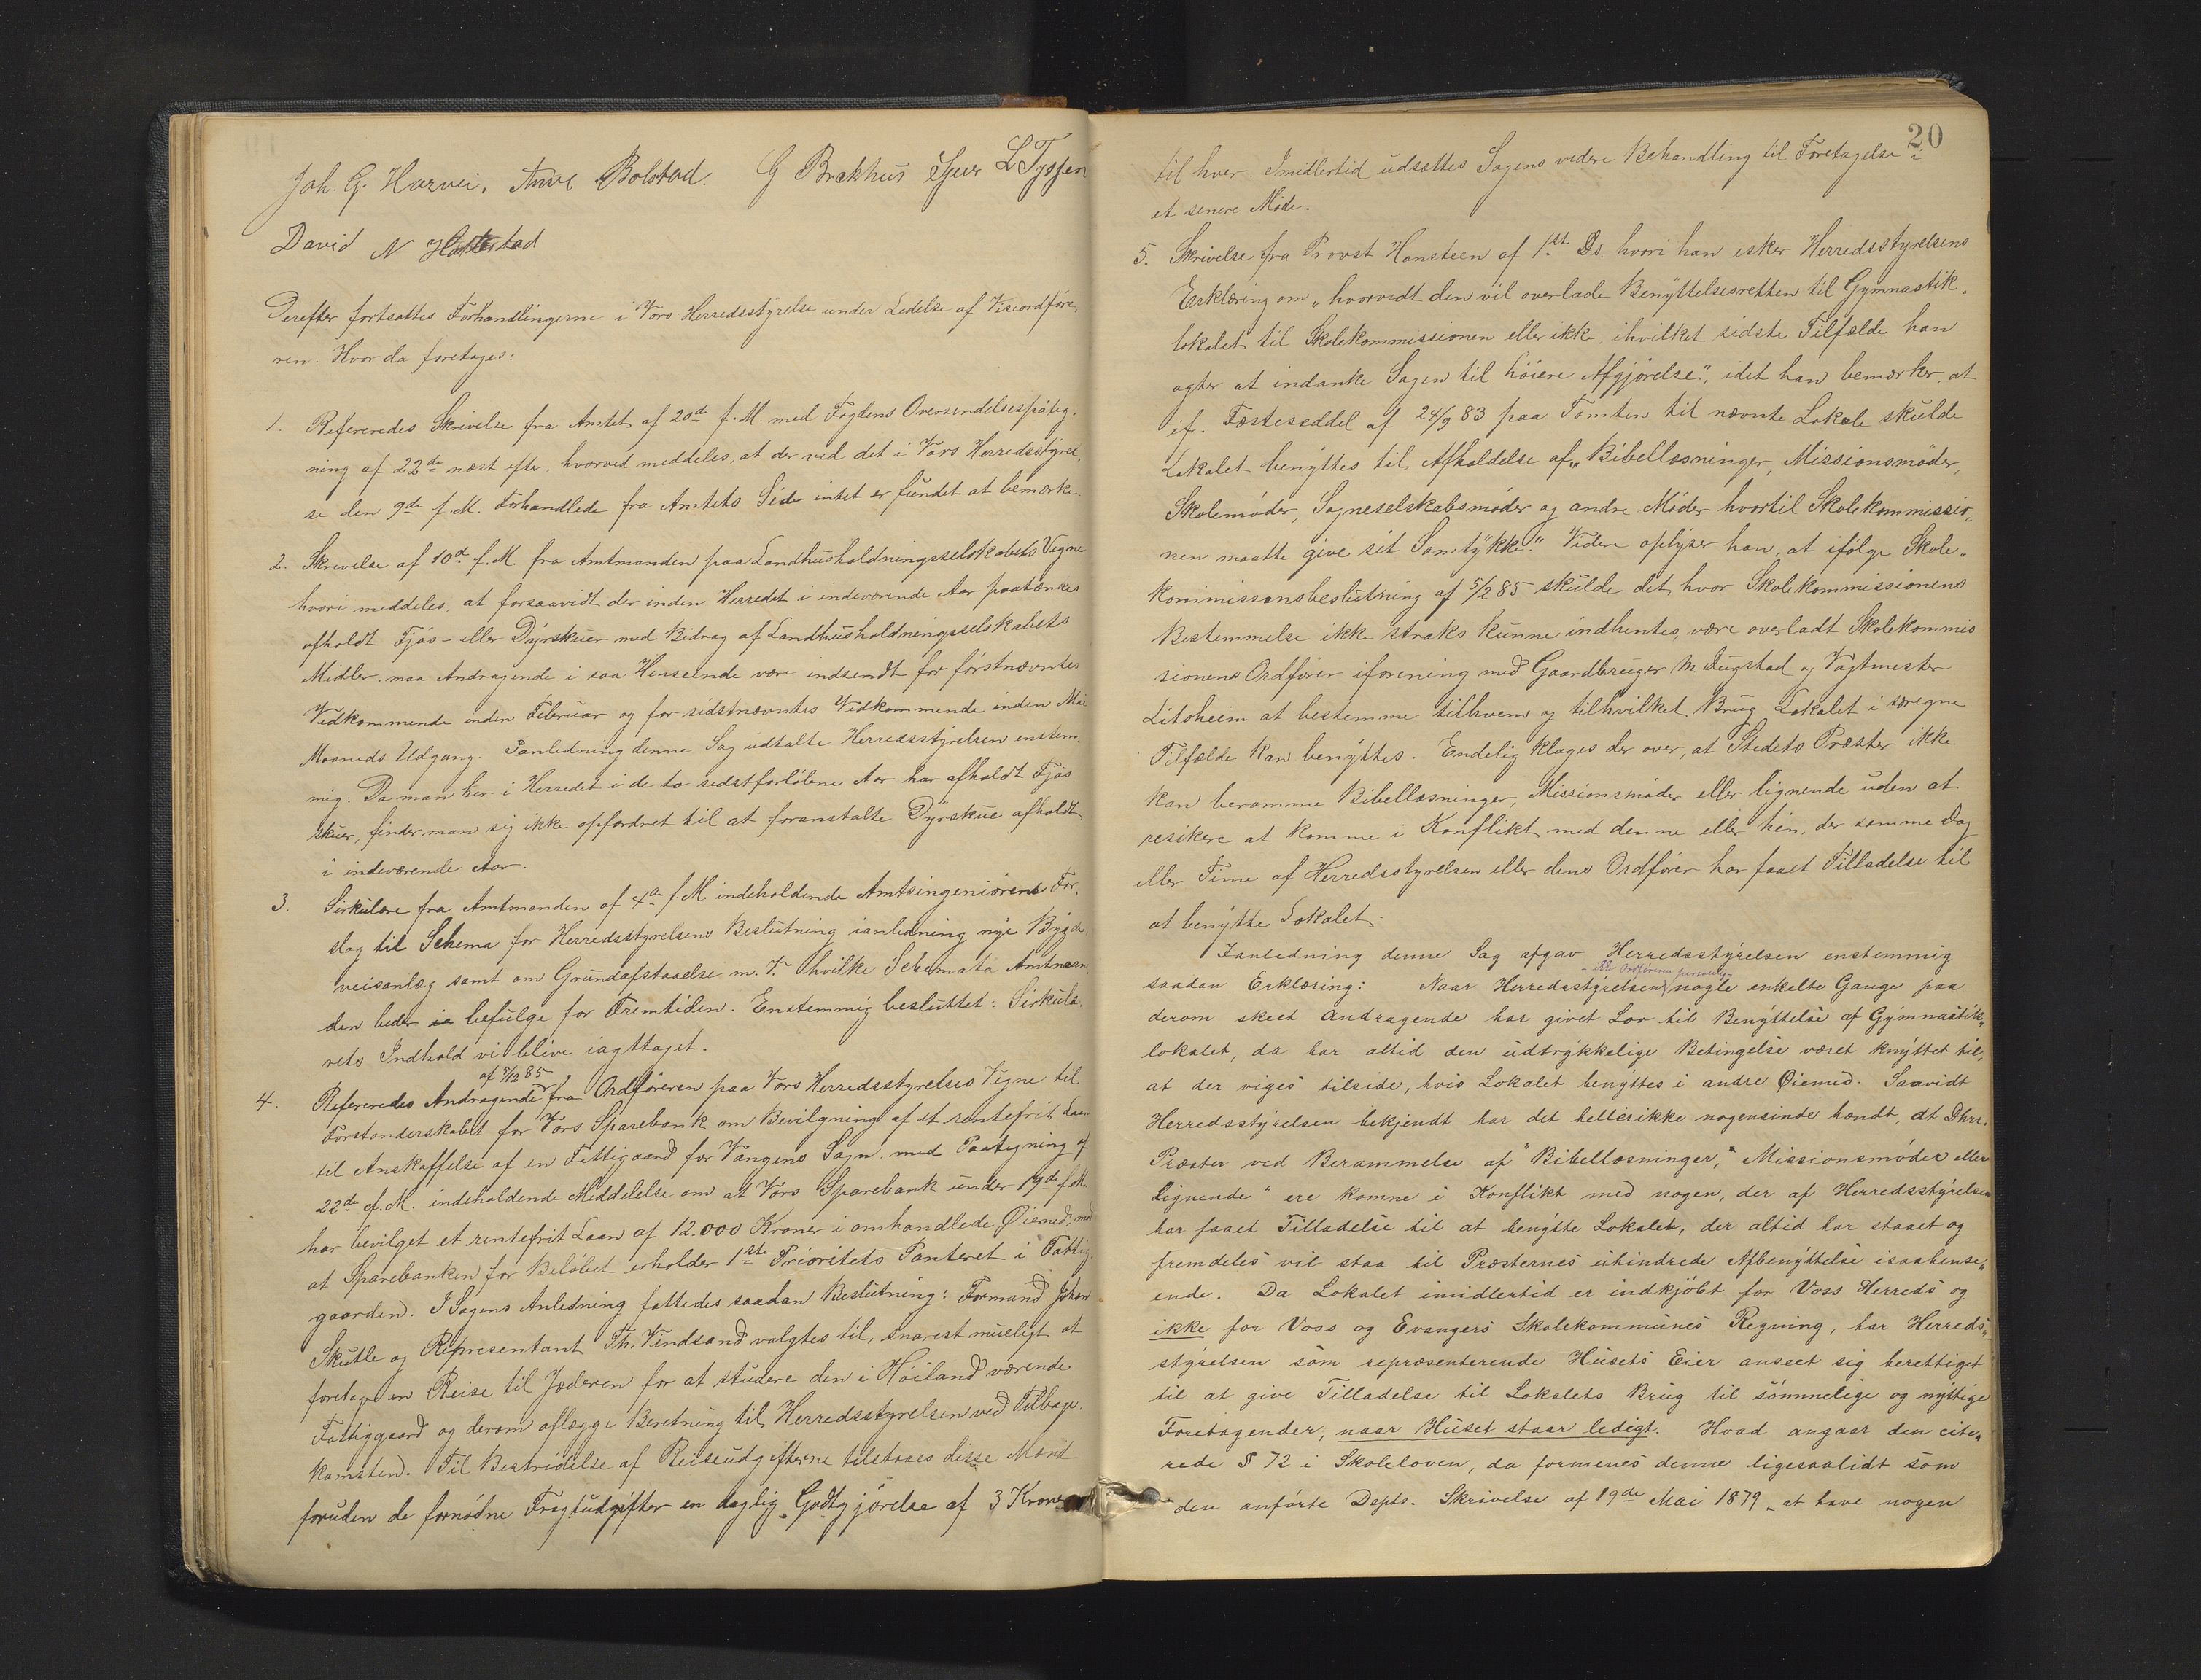 Joh. G. Harvei. Arne Bolstad. G Brekhus Sjur L Tyssen
David N H
Derefter fortsattes Forhandlingerne i Vors Herredsstyrelse under Ledelse af Viseordföre„
ren. Hvor da foretoges:
1. Refereredes Skrivelse fra Amtet af 20de f.M. med Fogdens Oversendelsespåteg„
ning af 22de næst efter, hvorved meddeles, at der ved det i Vors Herredsstyrel„
se den 9de f.M. Forhandlede fra Amtets Side intet er fundet at bemærke.
2. Skrivelse af 10de f.M. fra Amtmanden paa Landhusholdningsselskabets Vegne
hvori meddeles, at forsaavidt der inden Herredet i indeværende Aar paatænkes
afholdt Fjös- eller Dyrskuer med Bidrag af Landhusholdningsselskabets
Midler, maa Andragende i saa Henseende være indsendt for förstnævntes
Vedkommende inden Februar og for sidstnævntes Vedkommende inden Mai
Maaneds Udgang. Ianledning denne Sag udtalte Herredsstyrelsen enstem„
mig: Da man her i Herredet i de to sidstforløbne Aar har afholdt Fjös
skuer, finder man sig ikke opfordret til at foranstalte Dyrskue afholdt
i indeværende Aar.
3. Sirkulære fra Amtmanden af 4de f.M indeholdende Amtsingeniörens For„
slag til Schema for Herredsstyrelsens Beslutning ianledning nye Bygde„
veisanlæg samt om Grundafstaaelse m. V. hvilke Schemata Amtman
den beder befulgt for Fremtiden. Enstemmig besluttet: Sirkulæ„
rets Indhold vil blive iagttaget.
af 5/2 85
4. Refereredes Andragende fra Ordföreren paa Vors Herredsstyrelses Vegne til
Forstanderskabet for Vors Sparebank om Bevilgning af et rentefrit Laan
til Anskaffelse af en Fattiggaard for Vangens Sogn med Paategning af
22de f.M. indeholdende Meddelelse om at Vors Sparebank under 19de f.M
har bevilget et rentefrit Laan af 12.000 Kroner i omhandlede Øiemed, mod
at Sparebanken for Belöbet erholder 1ste Prioritets Panteret i Fattig„
gaarden. I Sagens Anledning fattedes saadan Beslutning: Formand Johan
Skutle og Representant Th. Vindsand valgtes til snarest mueligt at
foretage en Reise til Jæderen for at studere den i Höiland værende
Fattiggaard og derom aflægge Beretning til Herredsstyrelsen ved Tilbage„
komsten. Til Bestridelse af Reiseudgifterne tilstaaes disse Mænd
foruden de fornödne Fragtudgifter en daglig Godtgjörelse af 3 Kroner
20
til hver. Imidlertid udsættes Sagens videre Behandling til Foretagelse i
et senere Møde.
5. Skrivelse fra Provst Hansteen af 1ste Ds. hvori han esker Herredsstyrelsens
Erklæring om „hvorvidt den vil overlade Benyttelsesretten til Gymnastik„
lokalet til Skolekommissionen eller ikke, ihvilket sidste Tilfælde han
agter at indanke Sagen til höiere Afgjörelse“, idet han bemærker, at
if. Fæsteseddel af 24/9 83 paa Tomten til nævnte Lokale skulde
Lokalet benyttes til Afholdelse af „Bibellæsninger, Missionsmöder,
Skolemöder, Sogneselskabsmöder og andre Möder hvortil Skolekommissio„
nen maatte give sit Samtykke“. Videre oplyser han, at ifölge Skole„
kommissionsbeslutning af 5/2 85 skulde det, hvor Skolekommissionens
Bestemmelse ikke straks kunne indhentes, være overladt Skolekommis
sionens Ordförer iforening med Gaardbruger M. Dugstad og Vagtmester
Litsheim at bestemme tilhvem og tilhvilket Brug Lokalet i særegne
Tilfælde kan benyttes. Endelig klages der over, at Stedets Præster ikke
kan beramme Bibellæsninger, Missionsmöder eller lignende uden at
resikere at komme i Konflikt med denne eller hin, der samme Dag
eller Time af Herredsstyrelsen eller dens Ordförer har faaet Tilladelse til
at benytte Lokalet.
Ianledning denne Sag afgav Herredsstyrelsen enstemmig
- ell. Ordföreren personlig -
saadan Erklæring: Naar Herredsstyrelsen nogle enkelte Gange paa
derom skeet Andragende har givet Lov til Benyttelse af Gymnastik„
lokalet, da har altid den udtrykkelige Betingelse været knyttet til,
at der viges tilside, hvis Lokalet benyttes i andre Øiemed. Saavidt
Herredsstyrelsen bekjendt har det hellerikke nogensinde hændt, at Dhrr.
Præster ved Berammelse af "Bibellæsninger," Missionsmöder eller
Lignende" ere komne i Konflikt med nogen, der af Herredsstyrelsen
har faaet Tilladelse til at benytte Lokalet, der altid har staaet og
fremdeles vil staa til Præsternes uhindrede Afbenyttelse isaahense„
ende. Da Lokalet imidlertid er indkjöbt for Voss Herreds og
ikke for Voss og Evangers Skolekommunes Regning, har Herreds„
styrelsen som repræsenterende Husets Eier anseet sig berettiget
til at give Tilladelse til Lokalets Brug til sömmelige og nyttige
Foretagender, naar Huset staar ledigt. Hvad angaar den cite„
rede § 72 i Skoleloven, da formenes denne ligesaalidt som
den anförte Depts. Skrivelse af 19de Mai 1879, at have nogen